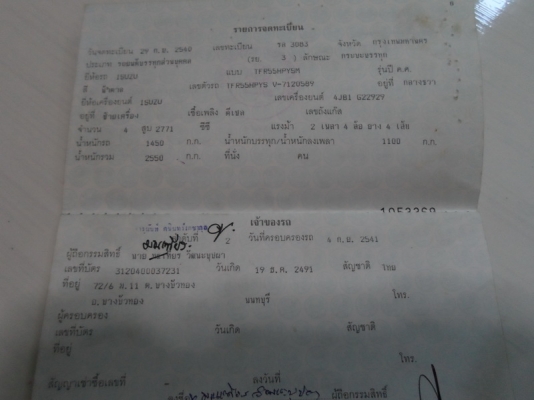 รายการจดทะเบียน
วันจดทะเบียน 29 ก.ย. 2540 เลขทะเบียน 3083 จังหวัด กรุงเทพมหานคร
ประเภท รถยนต์บรรทุกส่วนบุคคล (รย. 3 ) ลักษณะ กระบะบรรทุก
ยี่ห้อรถ ISUZU แบบ รุ่นปี ค.ศ.
สี เลขตัวรถ อยู่ที่ กลางขวา
ยี่ห้อเครื่องยนต์ ISUZU เลขเครื่องยนต์ 4JB1 622929
อยู่ที่ เชื้อเพลิง ดีเซล เลขถังแก๊ส
จำนวน 4 สูบ 2771 ซีซี แรงม้า 2 เพลา 4 ล้อ ยาง 4 เส้น
น้ำหนักรถ 1450 ก.ก. น้ำหนักบรรทุก/น้ำหนักลงเพลา 1100 ก.ก.
น้ำหนักรวม 2550 ก.ก. ที่นั่ง คน
เจ้าของรถ
ลำดับที่ 2 วันที่ครอบครองรถ 4 ก.ย. 2541
ผู้ถือกรรมสิทธิ์ นาย
เลขที่บัตร 3120400037231 วันเกิด 19 ธ.ค. 2491 สัญชาติ ไทย
ที่อยู่ 72/6 ม.11 ต.บางบัวทอง
อ.บางบัวทอง นนทบุรี โทร.
ผู้ครอบครอง
เลขที่บัตร วันเกิด สัญชาติ
ที่อยู่
โทร.
สัญญาเช่าซื้อเลขที่ ลงวันที่
ผู้ถือกรรมสิทธิ์